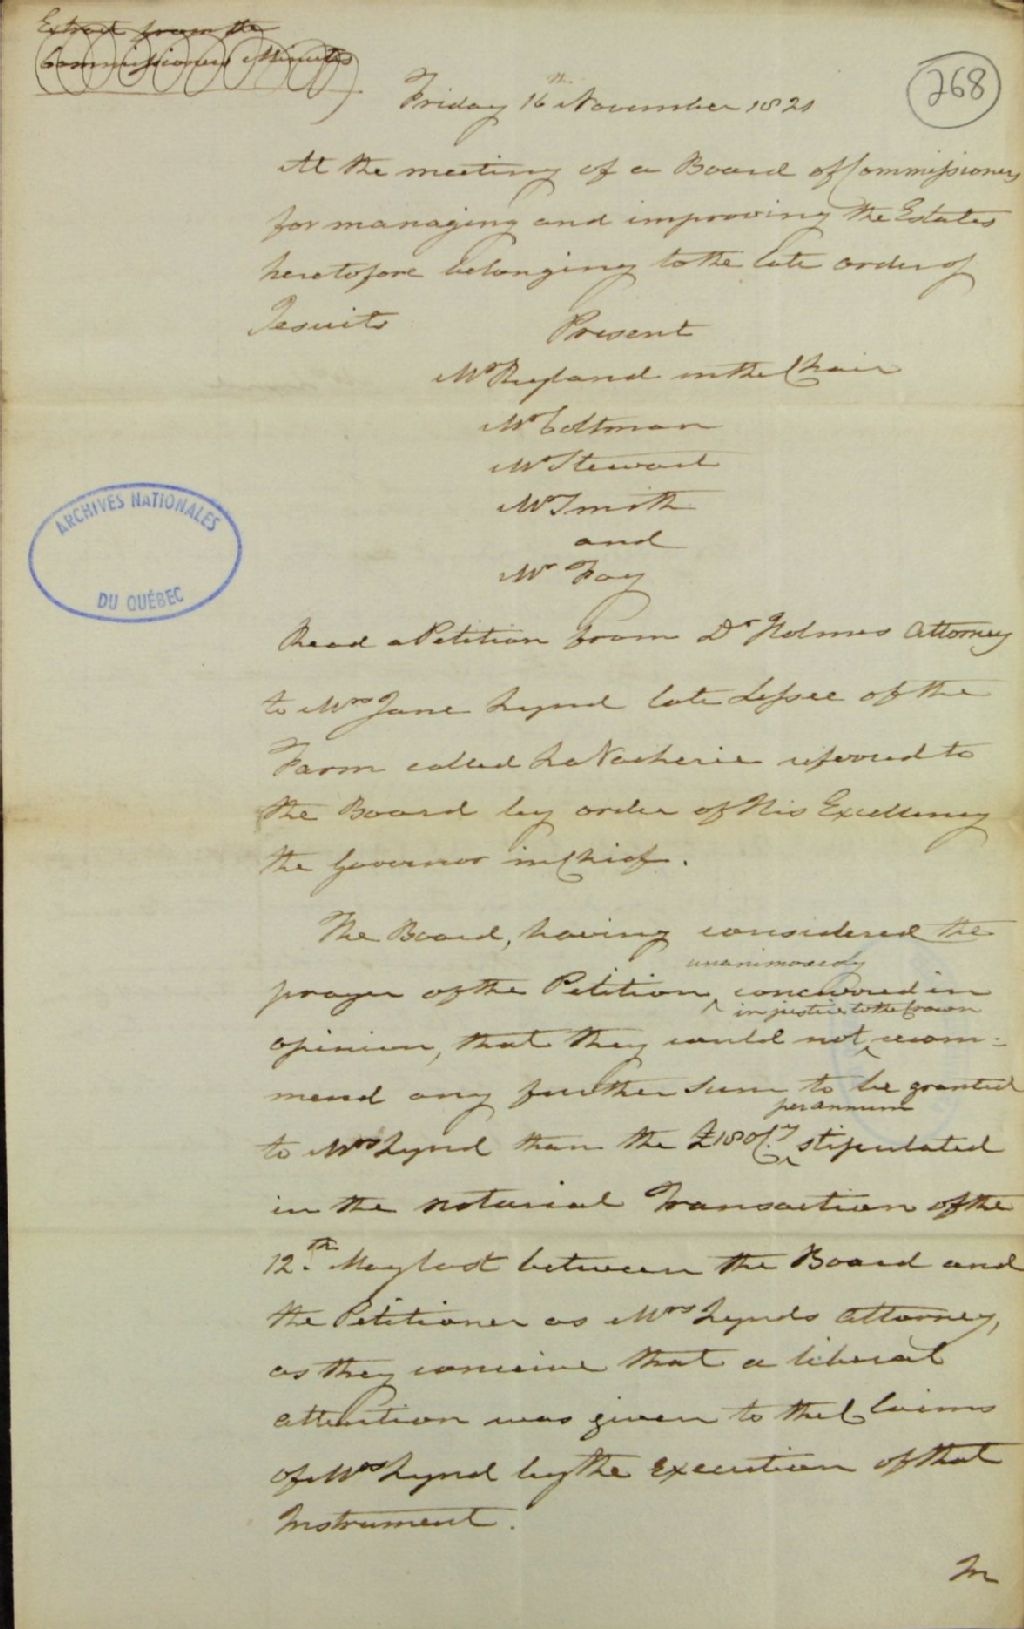 Extract from the
Commissioners Minutes
268
Friday 16th November 1821
At the meeting of a Board of Commissioners
for managing and improving the Estates
heretofore belonging to the late order of
Jesuits
Present
Mr Ryland in the Chair
Mr Coltman
Mr Steward
Mr Smith
and
Mr Foy
ARCHIVES NATIONALES
DU QUÉBEC
Read a Petition from Dr Holmes Attorney
to Mrs Jane Lynd late Lessee of the
Farm called La Vacherie referred to
the Board by order of His Excellency
the Governor in Chief.
The Board, having considered the
unanimously
prayer of the Petition ^ concurred in
in justice to the Crown
opinion, that they could not ^ recom-
mend any further Sum to be granted
per annum
to Mrs Lynd than the £180 ^ stipulated
in the notarial Transaction of the
12th May last between the Board and
the Petitioner as Mrs Lynds Attorney,
as they conceive that a liberal
attention was given to the Claims
of Mrs Lynd by the Execution of that
Instrument.